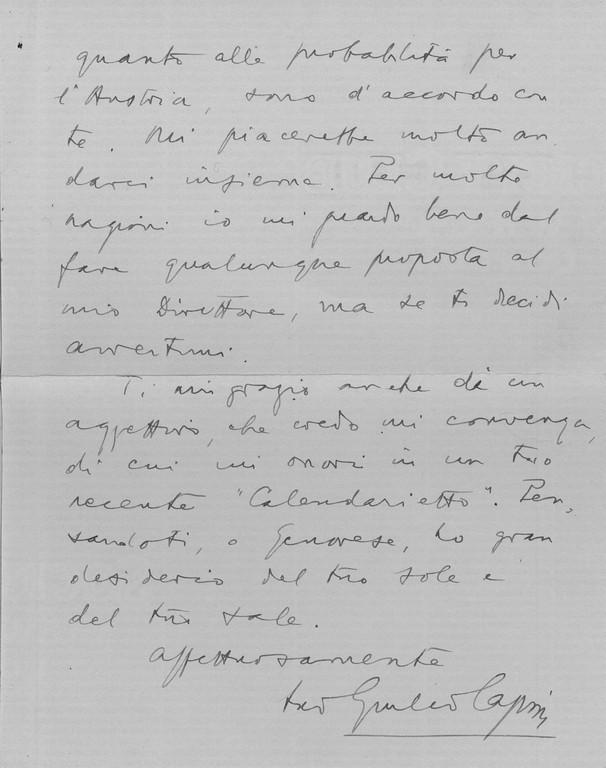 quanto alle probabilità per
l'Austria, sono d'accordo con
te. Mi piacerebbe molto an
darci insieme. Per molte
ragioni io mi guardo bene dal
fare qualunque proposta al
mio Direttore, ma se ti decidi
avvertimi.
Ti ringrazio anche di un
aggettivo, che credo mi convenga,
di cui mi onori in un tuo
recente "Calendarietto". Pen,
sandoti, o Genovese, ho gran
desiderio del tuo sole e
del tuo sale.
affettuosamente
tuo Giulio Caprin